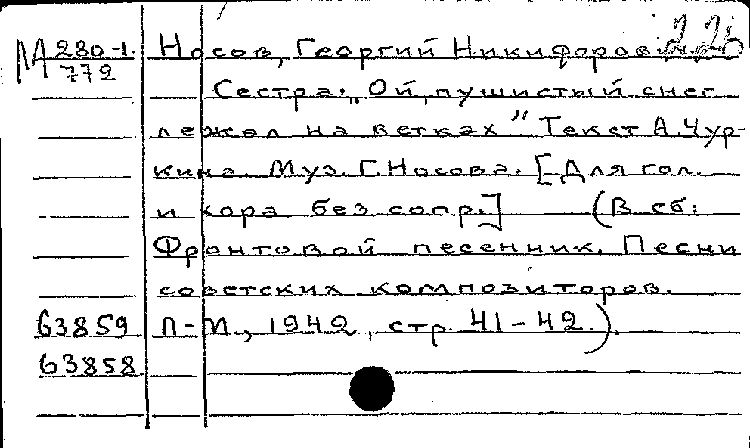 М 280-1. Носов, Георгий Никифоров
772
Сестра. "Ой, пушистый снег
лежал на ветках" Текст А. Чур-
кина. Муз. Г. Носова. [Для гол.
и хора без сопр.] (В сб:
Фронтовой песенник. Песни
советских композиторов.
63859 Л-М, 1942, стр. 41-42.).
63858